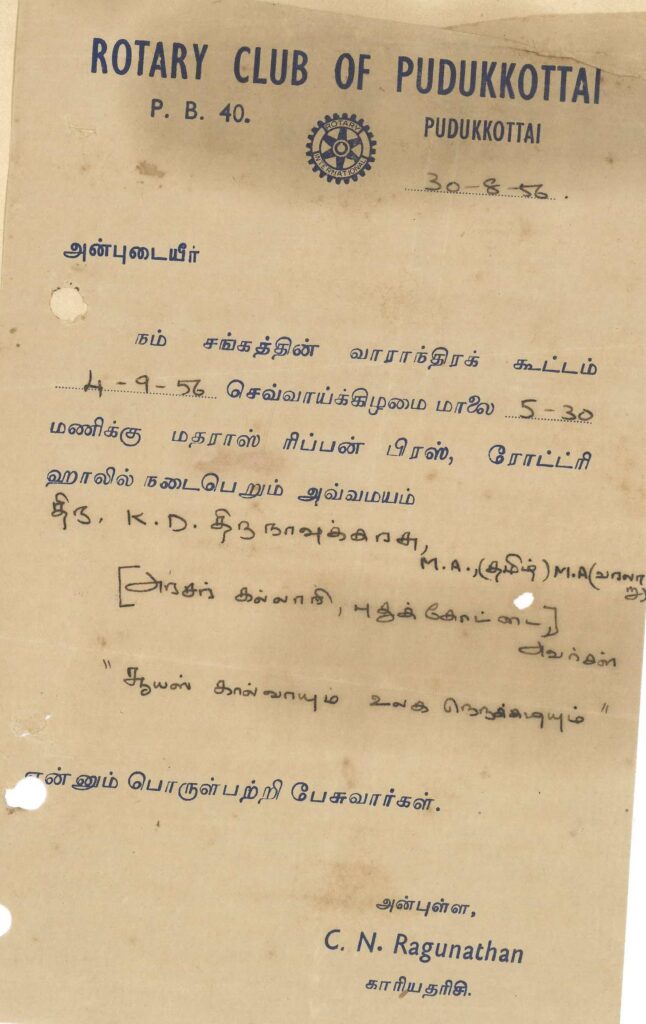 ROTARY CLUB OF PUDUKKOTTAI
P. B. 40.
ROTARY INTERNATIONAL
PUDUKKOTTAI
30-8-56.
அன்புடையீர்
நம் சங்கத்தின் வாராந்திரக் கூட்டம்
4-9-56 செவ்வாய்க்கிழமை மாலை 5-30
மணிக்கு மதராஸ் ரிப்பன் பிரஸ், ரோட்ட்ரி
ஹாலில் நடைபெறும் அவ்வமயம்
திரு. K. D. திருநாவுக்கரசு,
M.A., (தமிழ்) M.A (வரலாறு)
[அரசர் கல்லூரி, புதுக்கோட்டை,]
அவர்கள்
"சூயஸ் கால்வாயும் உலக நெருக்கடியும்"
என்னும் பொருள்பற்றி பேசுவார்கள்.
அன்புள்ள,
C. N. Ragunathan
காரியதரிசி.